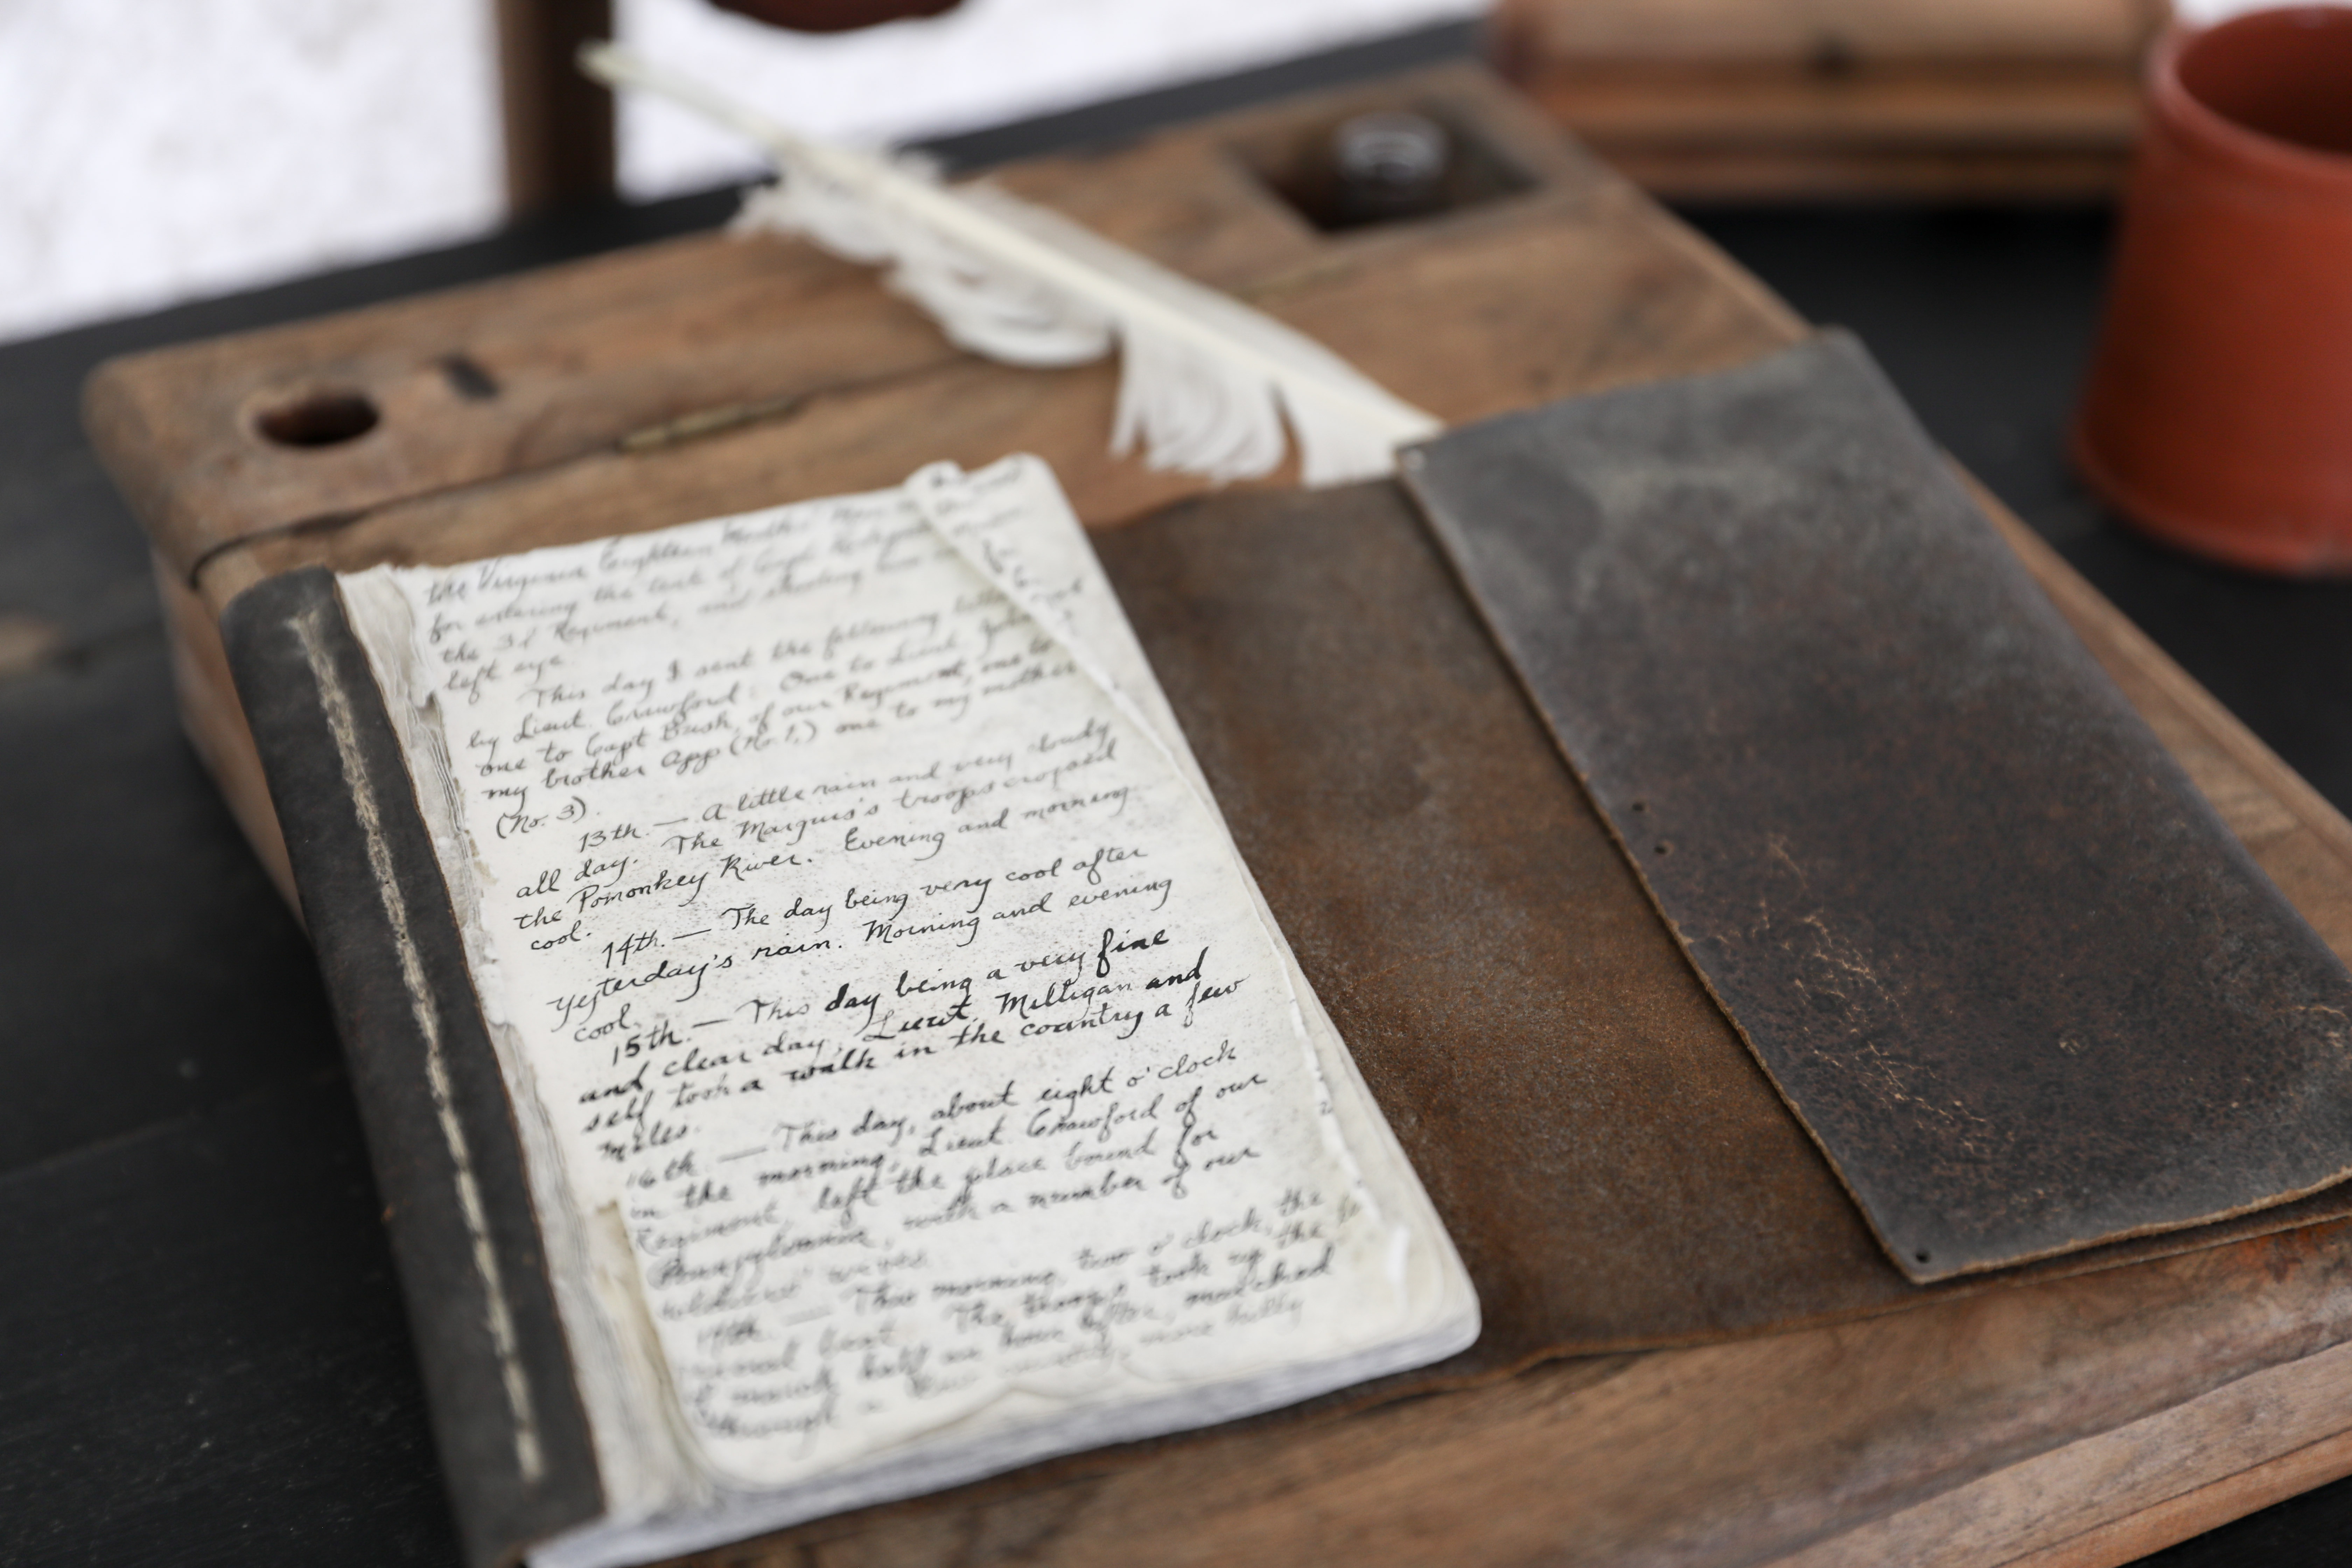 the Virginia Eighteen Months' Men
for entering the tent of Capt
the 3d Regiment, and
left eye.
This day I sent the following
by Lieut. Crawford: One to Lieut.
one to Capt Bush, of our Regiment, one to
my brother App (No. 1,) one to my mother
(No. 3).
13th. — A little rain and very cloudy
all day. The Marquis's troops crossed
the Pomonkey River. Evening and morning
cool.
14th. — The day being very cool after
yesterday's rain. Morning and evening
cool.
15th. — This day being a very fine
and clear day, Lieut. Milligan and
self took a walk in the country a few
miles.
16th. — This day, about eight o'clock
in the morning, Lieut. Crawford of our
Regiment, left the place bound for
Pennsylvania, with a number of our
soldiers' wives.
17th. — This morning, two o'clock, the
beat. The troops took up the
march half an hour after, marched
through a very hilly